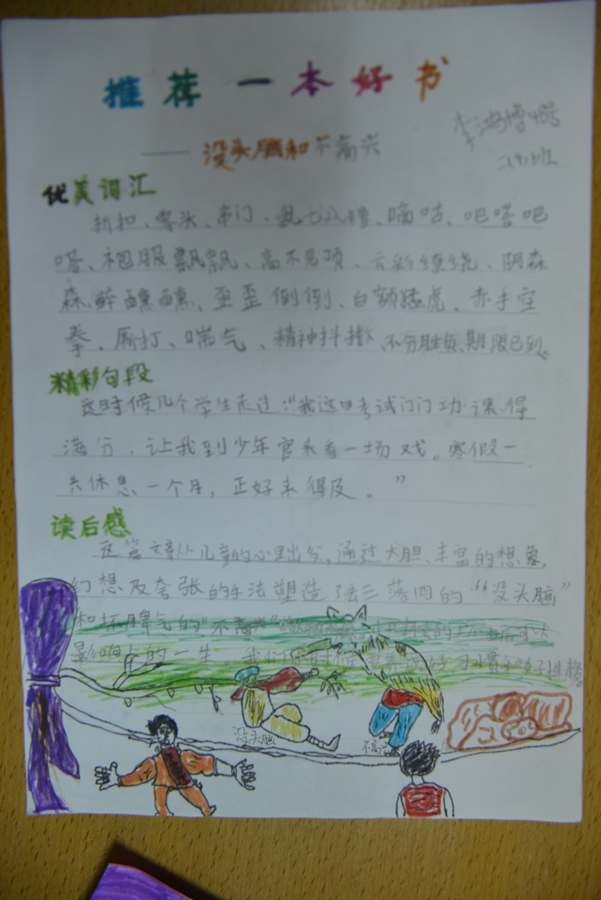 推荐一本好书
李鸿博 48号
——没头脑和不高兴
二年
班
优美词汇
折扣、零头、串门、乱七八糟、嘀咕、吧嗒吧
嗒、袍服飘飘、高不见顶、云彩缭绕、阴森
森、醉醺醺、歪歪倒倒、白额猛虎、赤手空
拳、厮打、喘气、精神抖擞、不分胜负、期限已到。
精彩句段
这时候几个学生走过:“我这回考试门门功课得
满分,让我到少年宫来看一场戏。寒假一
共休息一个月,正好来得及。”
读后感
这篇文章从儿童的心里出发,通过大胆、丰富的想象,
幻想及夸张的手法塑造了丢三落四的“没头脑”
和坏脾气的“不高兴”
影响人的一生。我们
好习惯和好性格。
没头脑
不高兴